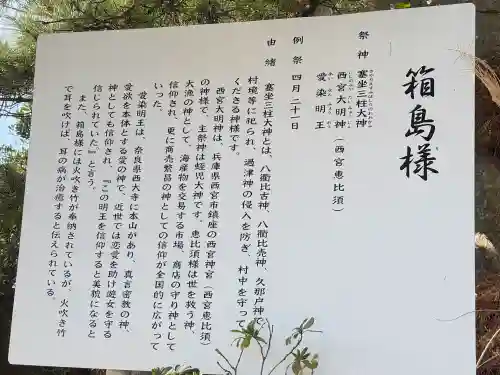 箱島様
祭神 塞坐三柱大神
西宮大明神(西宮恵比須)
愛染明王
例祭 四月二十一日
由緒 塞坐三柱大神とは、八衢比古神、八衢比売神、久那戸神で
村境等に祀られ、過津神の侵入を防ぎ、村中を守って
くださる神様です。
西宮大明神は、兵庫県西宮市鎮座の西宮神宮(西宮恵比須)
の神様で、主祭神は蛭児大神です。恵比須様は世を救う神、
大漁の神として、海産物を交易する市場、商店の守り神として
信仰され、更に商売繁昌の神としての信仰が全国的に広がって
いった。
愛染明王は、奈良県西大寺に本山があり、真言密教の神、
愛欲を本体とする愛の神で、近世では恋愛を助け遊女を守る
神としても信仰され、『この明王を信仰すると美貌になると
信じられていた。』と言う。
また、箱島様には火吹き竹が奉納されているが、火吹き竹
で耳を吹けば、耳の病が治癒すると伝えられている。